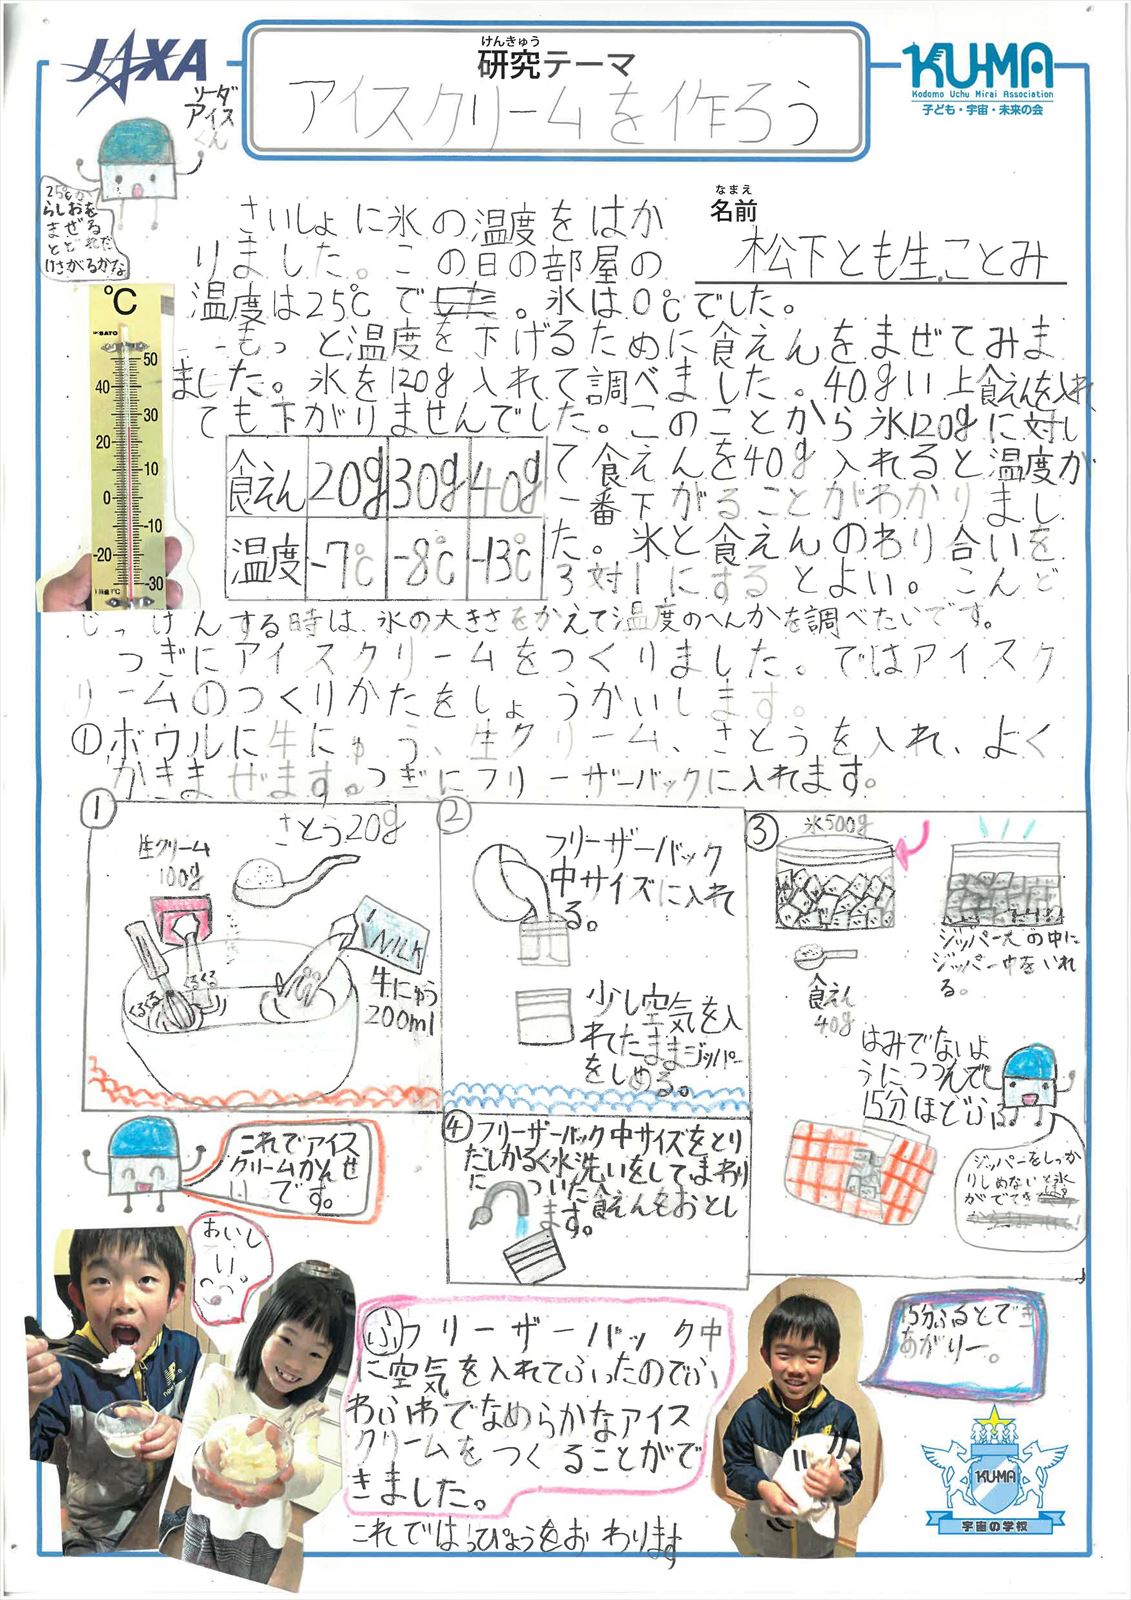 JAXA
けんきゅう
研究テーマ
アイスクリームを作ろう
KU-MA
Kodomo Uchu Mirai Association
子ども・宇宙・未来の会
ソーダ
アイス
くん
25℃か
らしおを
まぜる
とど
けさがるかな
なまえ
名前
松下とも生.ことみ
さいしょに氷の温度をはか
りました。この日の部屋の
温度は25℃でした。氷は0℃でした。
もっと温度を下げるために食えんをまぜてみま
ました。氷を120g入れて調べました。40gい上食えんを入れ
ても下がりませんでした。このことから氷120gに対し
て食えんを40g入れると温度が
一番下がることがわかりまし
た。氷と食えんのわり合いを
3対1にするとよい。こんど
じっけんする時は、氷の大きさをかえて温度のへんかを調べたいです。
℃
SATO
50
40
30
20
10
0
-10
-20
-30
食えん 20g 30g 40g
温度 -7℃ -8℃ -13℃
つぎにアイスクリームをつくりました。ではアイスク
リームのつくりかたをしょうかいします。
①ボウルに牛にゅう、生クリーム、さとうを入れ、よく
かきまぜます。つぎにフリーザーバックに入れます。
①
さとう20g
生クリーム
100g
MILK
牛にゅう
200ml
くるくる
くるくる
②
フリーザーバック
中サイズに入れ
る。
少し空気を入
れてたままジッパー
をしめる。
③
氷500g
食えん
40g
ジッパー大の中に
ジッパー中をいれ
る。
はみでないよ
うにつつんで
15分ほどふる
ジッパーをしっか
りしめないと氷
がでてき
④フリーザーバック中サイズをとり
だしかるく水洗いをしてまわり
についた食えんをおとし
ます。
これでアイス
クリームかんせ
いです。
おいし
いっ。
15分ふるとでき
あがりー。
ふフリーザーバック中
に空気を入れてふったのでふ
わふわでなめらかなアイス
クリームをつくることがで
きました。
これではっぴょうをおわります
KU-MA
宇宙の学校